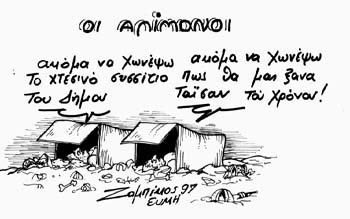 ΟΙ ΑΠΙΜΟΝΟΙ
ακόμα να χωνέψω
Το χτεσινό συσσίτιο
Του Δήμου
ακόμα να χωνέψω
πως θα μας ξανα
Ταΐσαν Του Χρόνου!
Ζομπίλος 97
ΕΥΜΗ